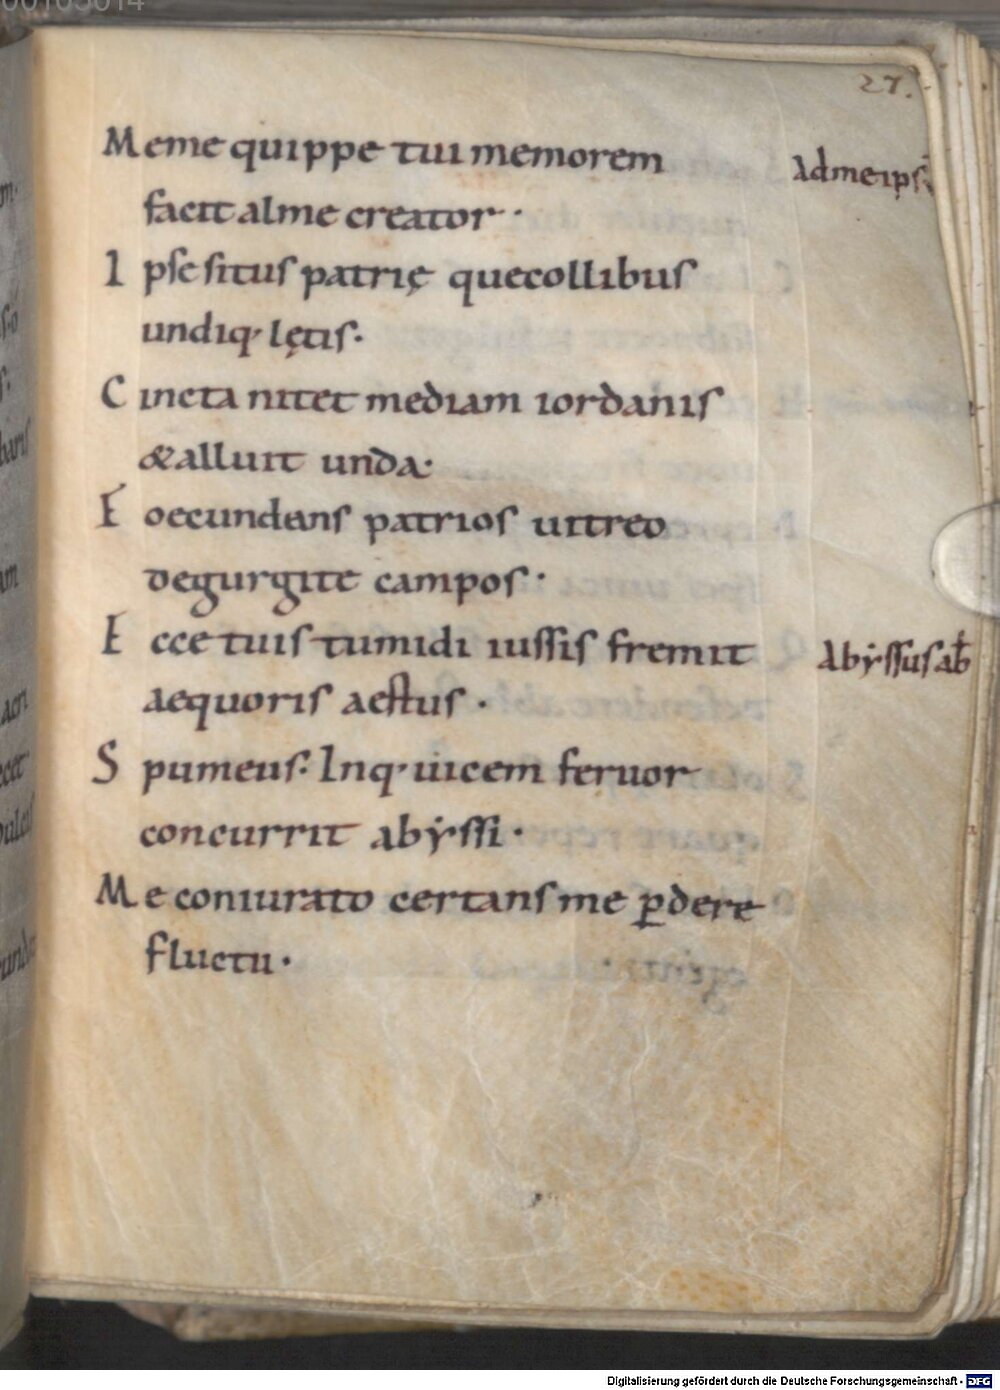 00105014
27.
Meme quippe tui memorem
Ad me ips̄
facit alme creator ·
Ipse situs patrię que collibus
undiq· lętis·
Cincta nitet mediam iordanis
& alluit unda·
Foecundans patrios uitreo
de gurgite campos ·
Ecce tuis tumidi iussis fremit
Abẏssus ab̄
aequoris aestus ·
Spumeus· Inq· uicem feruor
concurrit abẏssi ·
Me coniurato certans me ꝑdere
fluctu ·
Digitalisierung gefördert durch die Deutsche Forschungsgemeinschaft - DFG